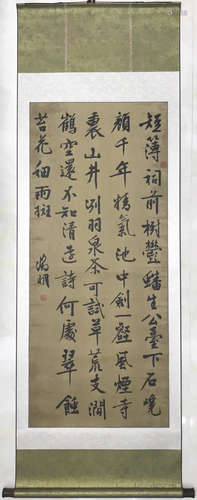 短簿祠前樹鬱蟠生公臺下石
顏千年精氣池中劍一壑風煙寺
裏山井冽羽泉茶可試草荒支澗
鶴空還不知清遠詩何處翠蝕
苔花細雨斑 徵明